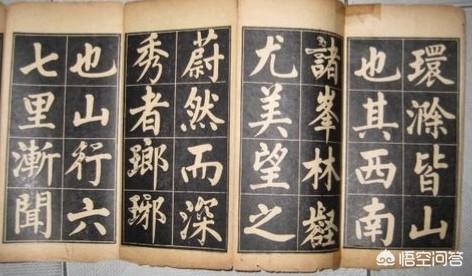 環滁皆山
也其西南
諸峯林壑
尤美望之
蔚然而深
秀者瑯琊
也山行六
七里漸聞
悟空问答